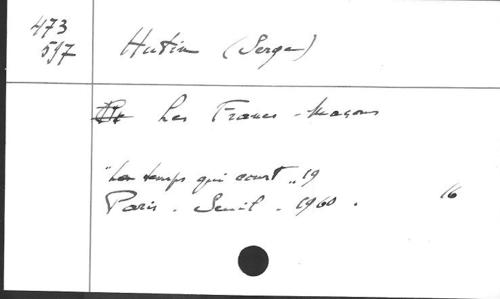 473
597
Hutin (Serge)
Les Francs-maçons
"Le temps qui court" 19
Paris. Seuil. 1960.
16